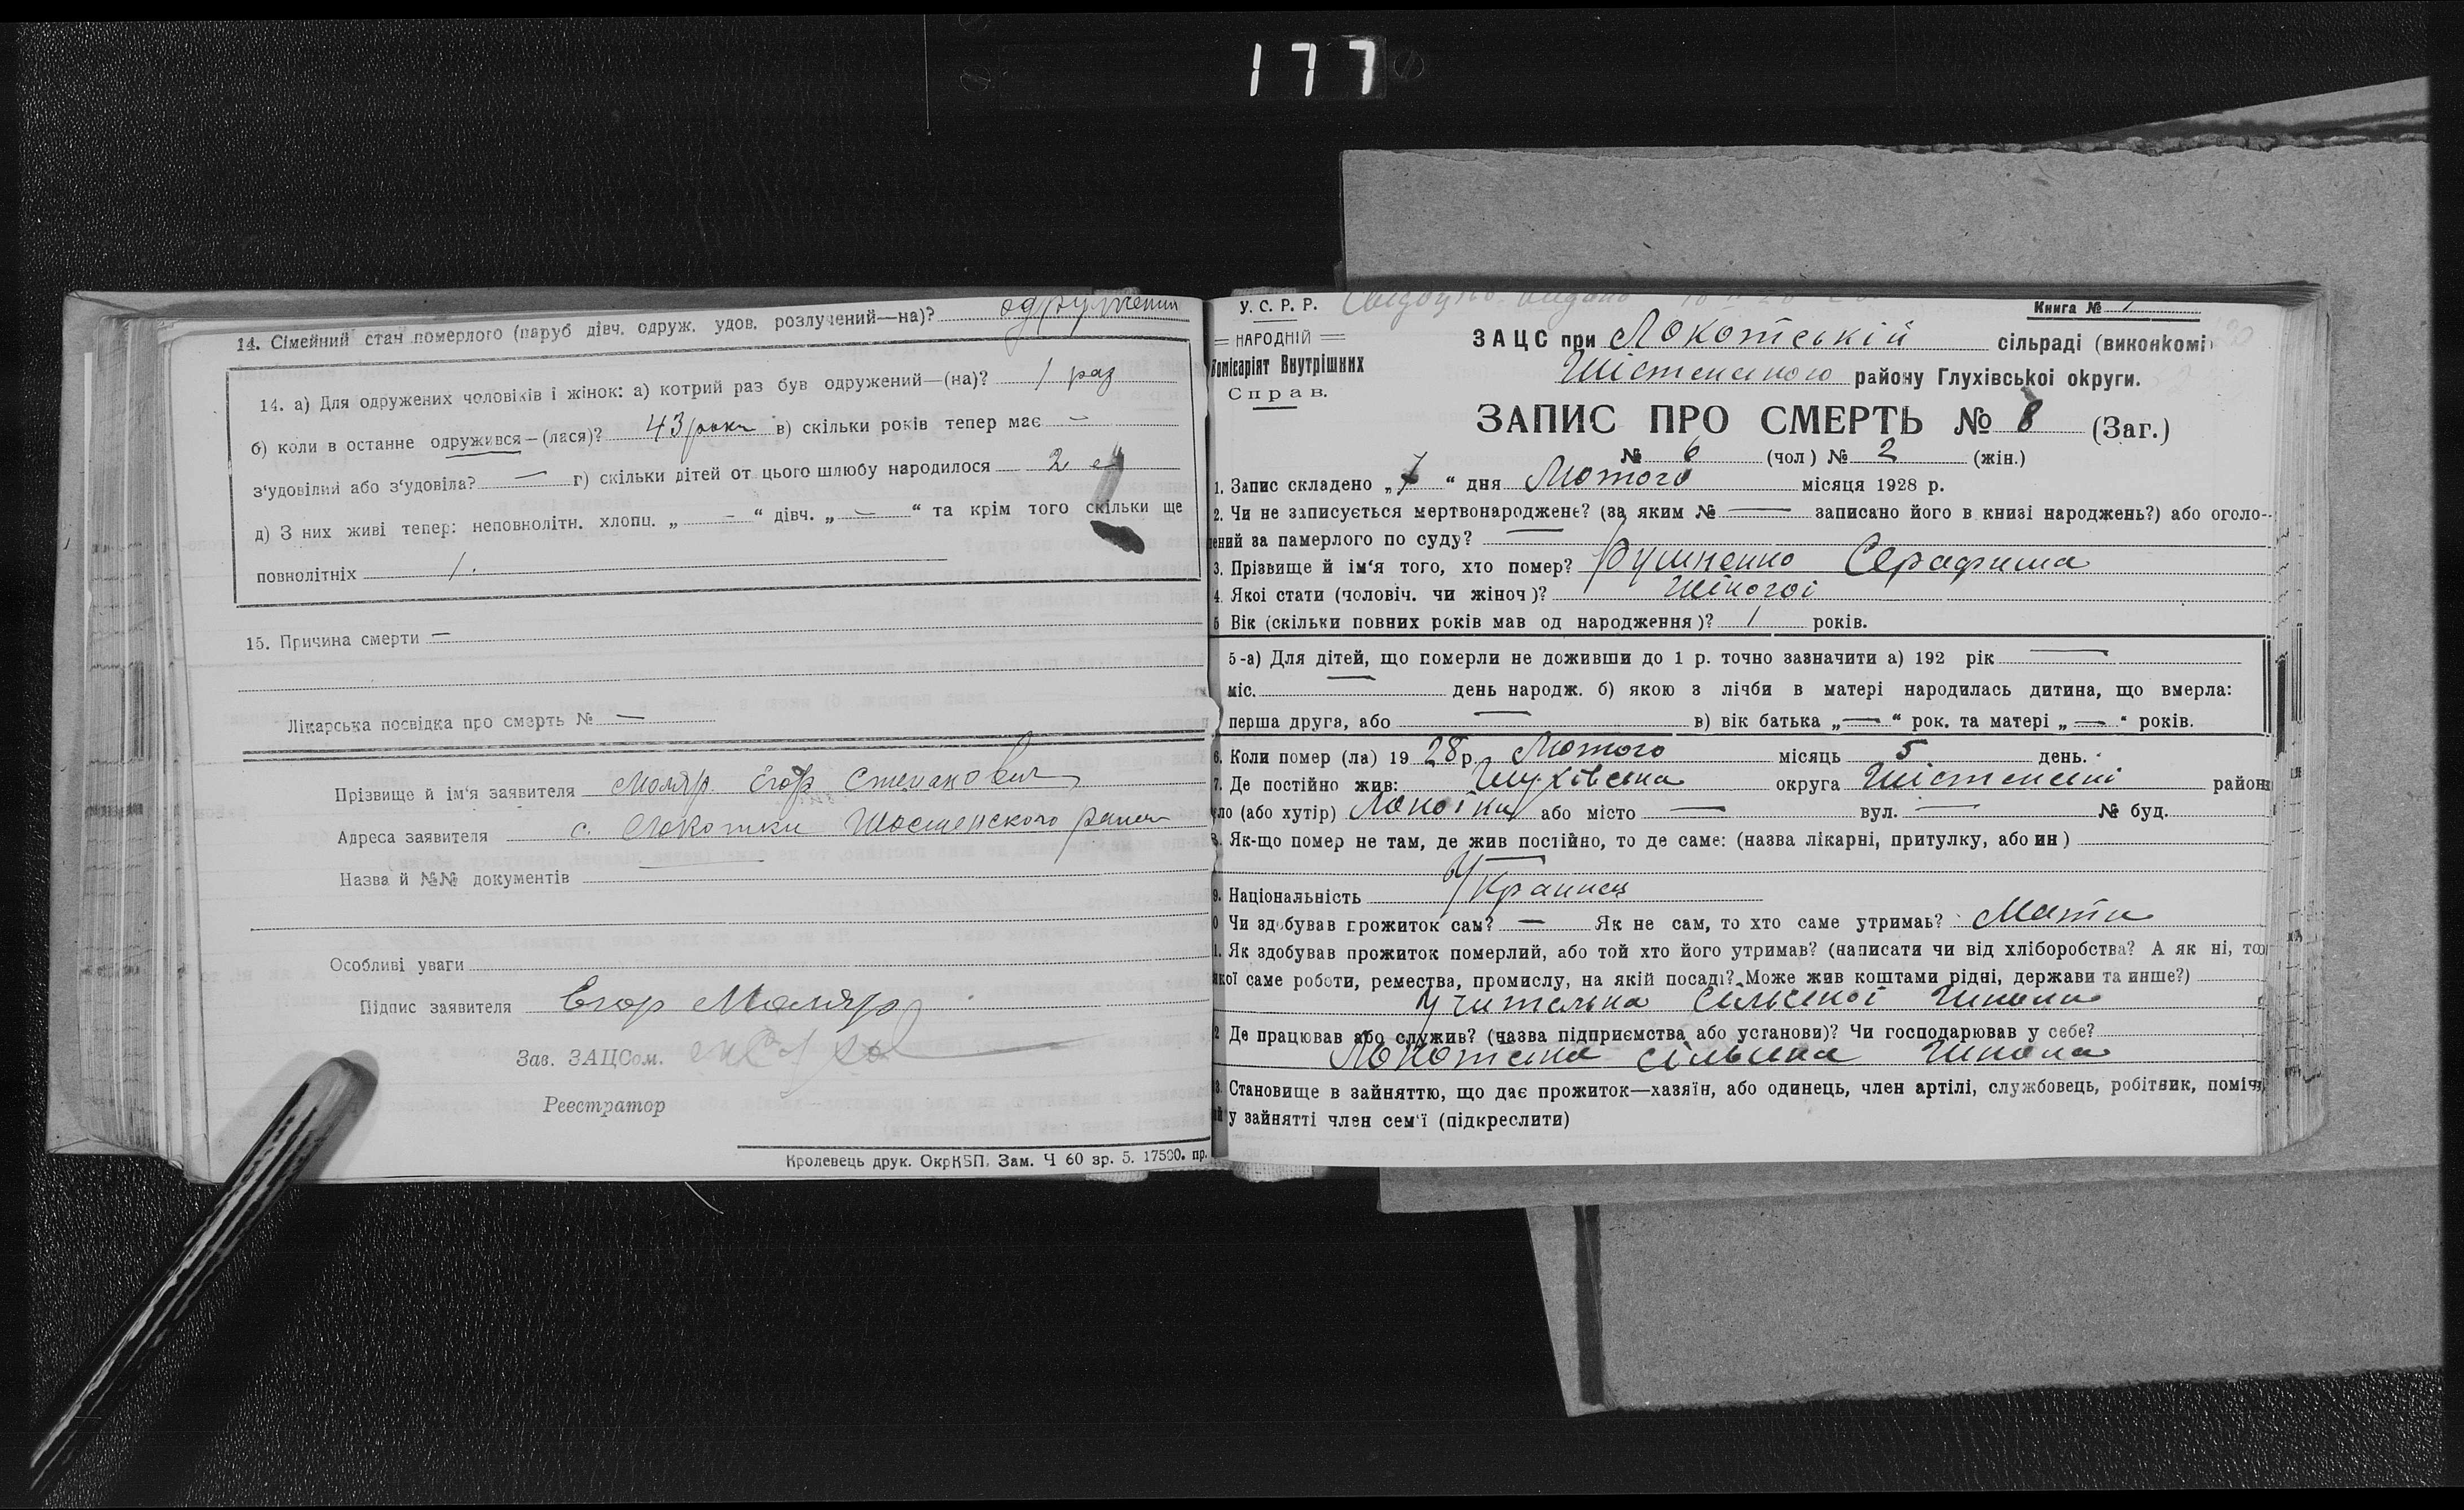 177
14. Сімейний стан померлого (паруб дівч. одруж. удов. розлучений—на)? одружений
14. а) Для одружених чоловіків і жінок: а) котрий раз був одружений—(на)? 1 раз
б) коли в останнє одружився—(лася)? 43 роки в) скільки років тепер має —
з'удовілий або з'удовіла? — г) скільки дітей от цього шлюбу народилося 2
д) З них живі тепер: неповнолітн. хлопц. „ – “ дівч. „ – “ та крім того скільки ще
повнолітніх 1.
15. Причина смерти —
Лікарська посвідка про смэрть № —
Прізвище й ім'я заявителя Моляр Егор Степанович
Адреса заявителя с. Локотки Шостенского
Назва й №№ документів —
Особливі уваги
Підпис заявителя Егор Моляр
Зав. ЗАЦСом.
Реєстратор
Кролевець друк. ОкрКБП. Зам. Ч 60 зр. 5. 17500. пр.
У. С. Р. Р.
Книга № 1
НАРОДНІЙ
Комісаріят Внутрішних
Справ.
ЗАЦС при Локотській сільраді (виконкомі
Шістенського району Глухівської округи.
ЗАПИС ПРО СМЕРТЬ № 8 (Заг.)
№ 6 (чол) № 2 (жін.)
1. Запис складено „7“ дня Лютого місяця 1928 р.
2. Чи не записується мертвонароджене? (за яким № — записано його в книзі народжень?) або оголо-
ений за памерлого по суду? —
3. Прізвище й ім'я того, хто помер? Серафима
4. Якої стати (чоловіч. чи жіноч)? Жіночої
5 Вік (скільки повних років мав од народження)? 1 років.
5-а) Для дітей, що померли не доживши до 1 р. точно зазначити а) 192 рік —
міс. — день народж. б) якою з лічби в матері народилась дитина, що вмерла:
перша друга, або — в) вік батька „—“ рок. та матері „—“ років.
6. Коли помер (ла) 1928 р. Лютого місяць 5 день.
7. Де постійно жив: Глухівська округа Шістенській район
ло (або хутір) Локотки або місто — вул. — № буд.
8. Як-що помер не там, де жив постійно, то де саме: (назва лікарні, притулку, або ин)
—
9. Національність Українец
0 Чи здобував прожиток сам? — Як не сам, то хто саме утримаь? Мати
1. Як здобував прожиток померлий, або той хто його утримав? (написати чи від хліборобства? А як ні, то
якої саме роботи, ремества, промислу, на якій посаді? Може жив коштами рідні, держави та инше?)
Учителька сільської школи
2 Де працював або служив? (назва підприємства або установи)? Чи господарював у себе?
Локотська сільська школа
3. Становище в зайняттю, що дає прожиток—хазяїн, або одинець, член артілі, службовець, робітник, поміч
у зайнятті член сем'ї (підкреслити)